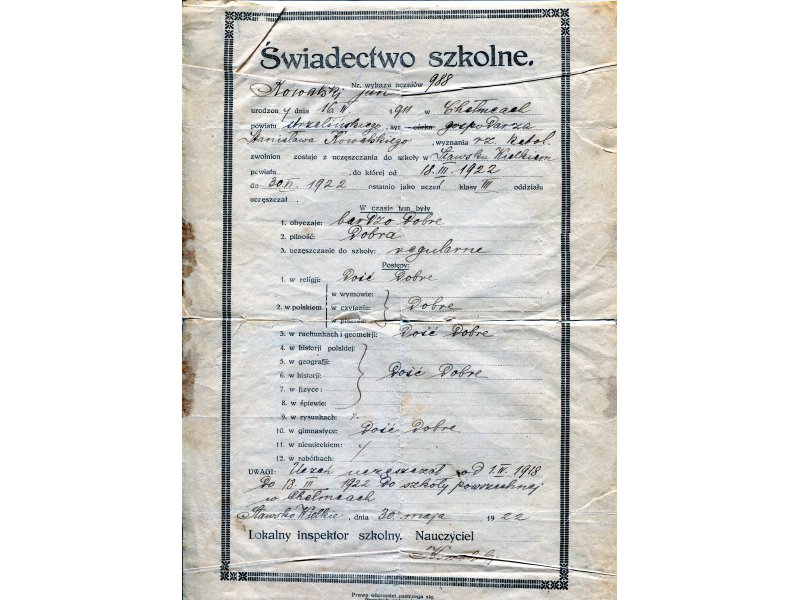 Świadectwo szkolne.
Nr. wykazu uczniów 988
Kowalski Jan
urodzon y dnia 16. IV 1911 w Chełmcach
powiatu strzelińskiego, syn córka gospodarza
Stanisława Kowalskiego wyznania rz. katol.
zwolnion zostaje z uczęszczania do szkoły w Sławsku Wielkiem
powiatu do której od 18. III. 1922
do 30 VI 1922 ostatnio jako uczeń klasy III oddziału
uczęszczał
W czasie tym były
1. obyczaje: bardzo dobre
2. pilność: Dobra
3. uczęszczanie do szkoły: regularne
Postępy:
1. w religji: Dość Dobre
2. w polskiem
w wymowie:
w czytaniu: Dobre
w pisaniu:
3. w rachunkach i geometrji: Dość Dobre
4. w historji polskiej:
5. w geografji:
6. w historji: Dość Dobre
7. w fizyce:
8. w śpiewie:
9. w rysunkach:
10. w gimnastyce: Dość Dobre
11. w niemieckiem:
12. w robótkach:
UWAGI: Uczeń uczęszczał od 1. IV. 1918
Do 18. III 1922 Do szkoły powszechnej
w Chełmcach
Sławsko Wielkie, dnia 30 maja 1922
Lokalny inspektor szkolny. Nauczyciel
Prawo własności zastrzega się.